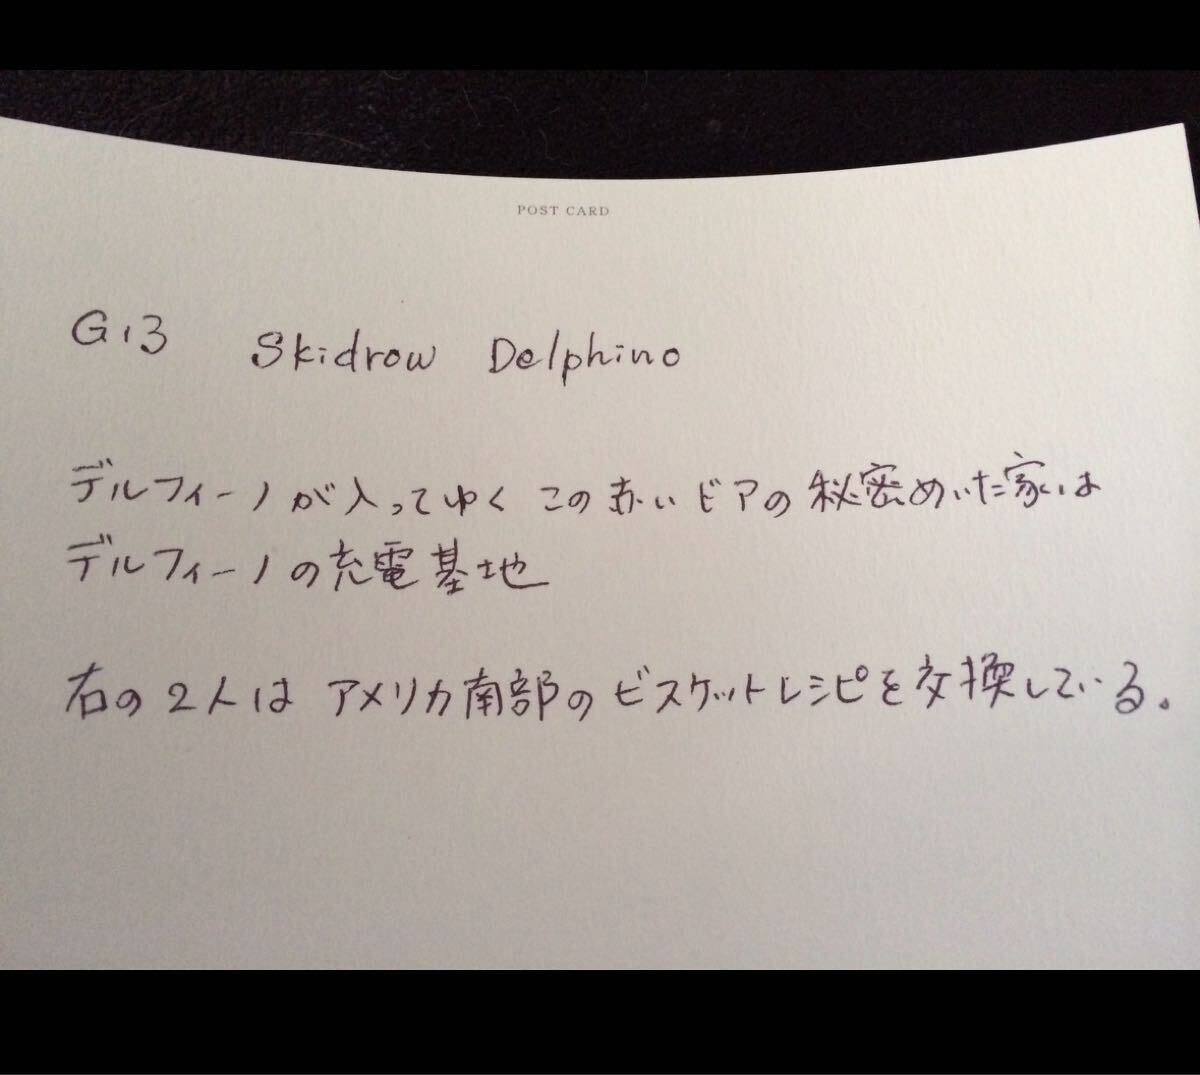 POST CARD
G13 Skidrow Delphino
デルフィーノが入ってゆく この赤いドアの秘密めいた家は
デルフィーノの充電基地
右の2人は アメリカ南部のビスケットレシピを交換している。